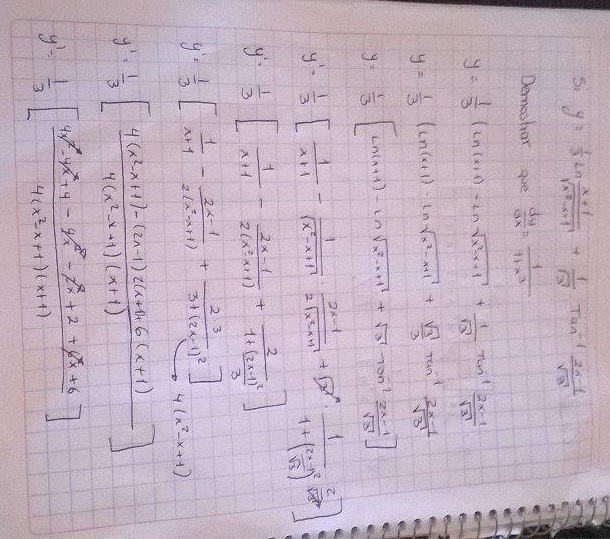 Si y = 1/3 Ln (x+1)/√(x²-x+1) + 1/√3 Tan⁻¹ (2x-1)/√3
Demostrar que dy/dx = 1/(1+x³)
y = 1/3 (Ln(x+1) - Ln √(x²-x+1)) + 1/√3 Tan⁻¹ (2x-1)/√3
y = 1/3 (Ln(x+1) - Ln √(x²-x+1)) + √3/3 Tan⁻¹ (2x-1)/√3
y = 1/3 [Ln(x+1) - Ln √(x²-x+1) + √3 Tan⁻¹ (2x-1)/√3]
y' = 1/3 [1/(x+1) - 1/√(x²-x+1) · (2x-1)/(2√(x²-x+1)) + √3 · 1/(1+((2x-1)/√3)²) · 2/√3]
y' = 1/3 [1/(x+1) - (2x-1)/(2(x²-x+1)) + 2/(1+(2x-1)²/3)]
y' = 1/3 [1/(x+1) - (2x-1)/(2(x²-x+1)) + 2·3/(3+(2x-1)²)] → 4(x²-x+1)
y' = 1/3 [(4(x²-x+1) - (2x-1)2(x+1)+6(x+1))/(4(x²-x+1)(x+1))]
y' = 1/3 [(4x²-4x+4-4x²-2x+2+6x+6)/(4(x²-x+1)(x+1))]